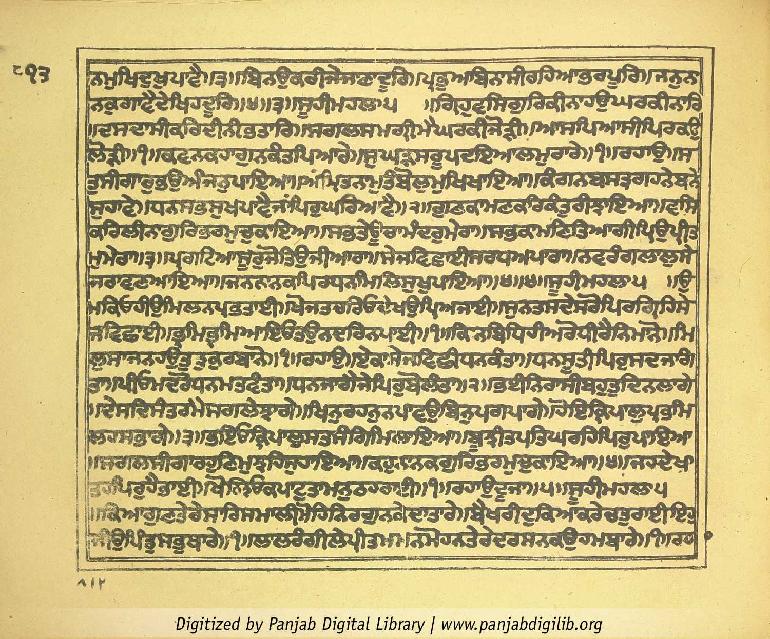 ੮੧੩
ਨਮੁਖਿਦੁਖੁਪਾਵੈ॥੩॥ਬਿਨਉਕਰੀਜੇਜਾਣਾਦੂਰਿ॥ਪ੍ਰਭੁਅਬਿਨਾਸੀਰਹਿਆਭਰਪੂਰਿ॥ਜਨੁਨਾ
ਨਕੁਗਾਵੈਦੇਖਿਹਦੂਰਿ॥੪॥੩॥ਸੂਹੀਮਹਲਾ੫ ॥ਗ੍ਰਿਹੁਵਸਿਗੁਰਿਕੀਨਾਹਉਘਰਕੀਨਾਰਿ
॥ਦਸਦਾਸੀਕਰਿਦੀਨੀਭਤਾਰਿ॥ਸਗਲਸਮਗ੍ਰੀਮੈਘਰਕੀਜੋੜੀ॥ਆਸਪਿਆਸੀਪਿਰਕਉ
ਲੋੜੀ॥੧॥ਕਵਨਕਹਾਗੁਨਕੰਤਪਿਆਰੇ॥ਸੁਘੜਸਰੂਪਦਇਆਲਮੁਰਾਰੇ॥੧॥ਰਹਾਉ॥ਸ
ਤੁਸੀਗਾਰੁਭਉਅੰਜਨੁਪਾਇਆ॥ਅੰਮ੍ਰਿਤਨਾਮੁਤੰਬੋਲੁਮੁਖਿਖਾਇਆ॥ਕੰਗਨਬਸਤ੍ਰਗਹਨੇਬਨੇ
ਸੁਹਾਵੇ॥ਧਨਸਭਸੁਖਪਾਵੈਜਾਂਪਿਰੁਘਰਿਆਵੈ॥੨॥ਗੁਣਕਾਮਣਕਰਿਕੰਤੁਰੀਝਾਇਆ॥ਵਸਿ
ਕਰਿਲੀਨਾਗੁਰਿਭਰਮੁਚੁਕਾਇਆ॥ਸਭਤੇਊਚਾਮੰਦਰੁਮੇਰਾ॥ਸਭਕਾਮਣਿਤਿਆਗੀਪ੍ਰਿਉਪ੍ਰੀਤ
ਮੁਮੇਰਾ॥੩॥ਪ੍ਰਗਟਿਆਸੂਰੁਜੋਤਿਉਜੀਆਰਾ॥ਸੇਜਵਿਛਾਈਸਰਧਅਪਾਰਾ॥ਨਵਰੰਗਲਾਲੁਸੇ
ਜਰਾਵਣਆਇਆ॥ਜਨਨਾਨਕਪਿਰਧਨਮਿਲਿਸੁਖੁਪਾਇਆ॥੪॥੪॥ਸੂਹੀਮਹਲਾ੫ ॥ਉ
ਮਕਿਓਹੀਉਮਿਲਨਪ੍ਰਭਤਾਈ॥ਖੋਜਤਚਰਿਓਦੇਖਉਪ੍ਰਿਅਜਾਈ॥ਸੁਨਤਸਦੇਸਰੋਪ੍ਰਿਅਗ੍ਰਿਹਿਸੇ
ਜਵਿਛਾਈ॥ਭ੍ਰਮਿਭ੍ਰਮਿਆਇਓਤਉਨਦਰਿਨਪਾਈ॥੧॥ਕਿਨਬਿਧਿਹੀਅਰੋਧੀਰੈਨਿਮਾਨੋ॥ਮਿ
ਲੁਸਾਜਨਹਉਤੁਝੁਕੁਰਬਾਨੋ॥੧॥ਰਹਾਉ॥ਏਕਾਸੇਜਵਿਛੀਧਨਕੰਤਾ॥ਧਨਸੂਤੀਪਿਰੁਸਦਜਾਗੰ
ਤਾ॥ਪੀਓਮਦਰੋਧਨਮਤਵੰਤਾ॥ਧਨਜਾਗੈਜੇਪਿਰੁਬੋਲੰਤਾ॥੨॥ਭਈਨਿਰਾਸੀਬਹੁਤੁਦਿਨਲਾਗੇ
॥ਦੇਸਦਿਸੰਤਰਮੈਸਗਲੇਝਾਗੇ॥ਖਿਨੁਰਹਨੁਨਪਾਵਉਬਿਨੁਪਗਪਾਗੇ॥ਹੋਇਕ੍ਰਿਪਾਲੁਪ੍ਰਭਮਿ
ਲਹਸਭਾਗੇ॥੩॥ਭਇਓਕ੍ਰਿਪਾਲੁਸਤਸੰਗਿਮਿਲਾਇਆ॥ਬੂਝੀਤਪਤਿਘਰਹਿਪਿਰੁਪਾਇਆ
॥ਸਗਲਸੀਗਾਰਹੁਣਿਮੁਝਹਿਸੁਹਾਇਆ॥ਕਹੁਨਾਨਕਗੁਰਿਭਰਮੁਚੁਕਾਇਆ॥੪॥ਜਹਦੇਖਾ
ਤਹਪਿਰੁਹੈਭਾਈ॥ਖੋਲਿ੍ਓਕਪਾਟੁਤਾਮਨੁਠਹਰਾਈ॥੧॥ਰਹਾਉਦੂਜਾ॥੫॥ਸੂਹੀਮਹਲਾ੫
॥ਕਿਆਗੁਣਤੇਰੇਸਾਰਿਸਮਾਲੀਮੋਹਿਨਿਰਗੁਨਕੇਦਾਤਾਰੇ॥ਬੈਖਰੀਦੁਕਿਆਕਰੇਚਤੁਰਾਈਇਹੁ
ਜੀਉਪਿੰਡੁਸਭੁਥਾਰੇ॥੧॥ਲਾਲਰੰਗੀਲੇਪ੍ਰੀਤਮਮਨਮੋਹਨਤੇਰੇਦਰਸਨਕਉਹਮਬਾਰੇ॥੧॥ਰਹਾ
੮੧੨
Digitized by Panjab Digital Library | www.panjabdigilib.org